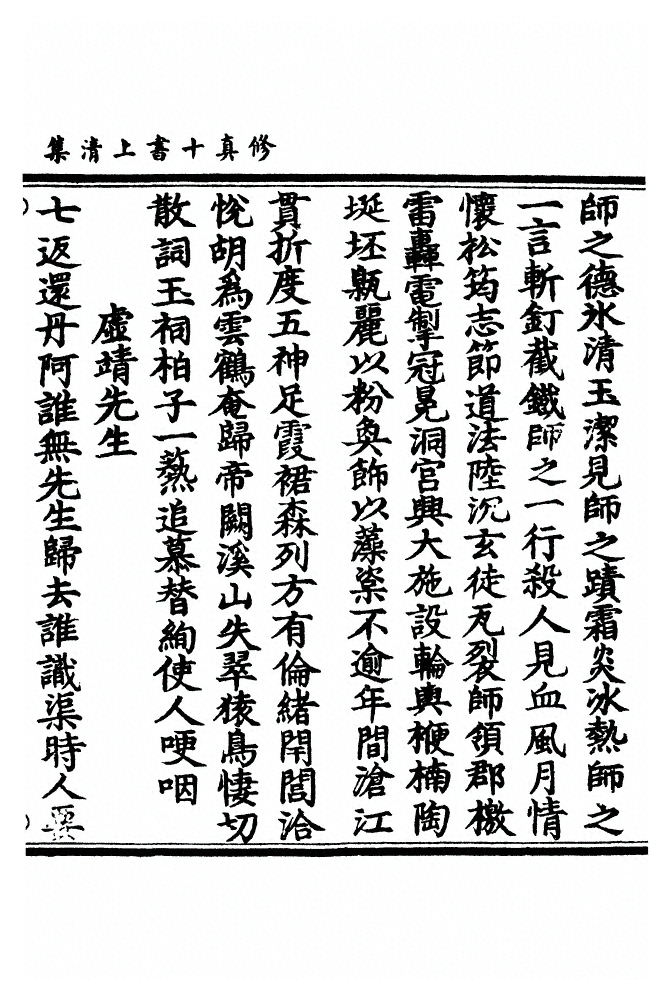 修真十書上清集
師之德氷清玉潔見師之蹟霜炎冰熱師之
一言斬釘截鐵師之一行殺人見血風月情
懷松筠志節道法陸沉玄徒瓦裂師領郡檄
雷轟電掣冠冕洞宮興大施設輪輿楩楠陶
埏坯甈麗以粉奐飾以藻棸不逾年間滄江
貫折度五神足霞裙森列方有倫緒閈閭洽
悅胡為雲鶴奄歸帝闕溪山失翠猿鳥悽切
散詞玉祠柏子一爇追慕替絢使人哽咽
虛靖先生
七返還丹阿誰無先生歸去誰識渠時人要